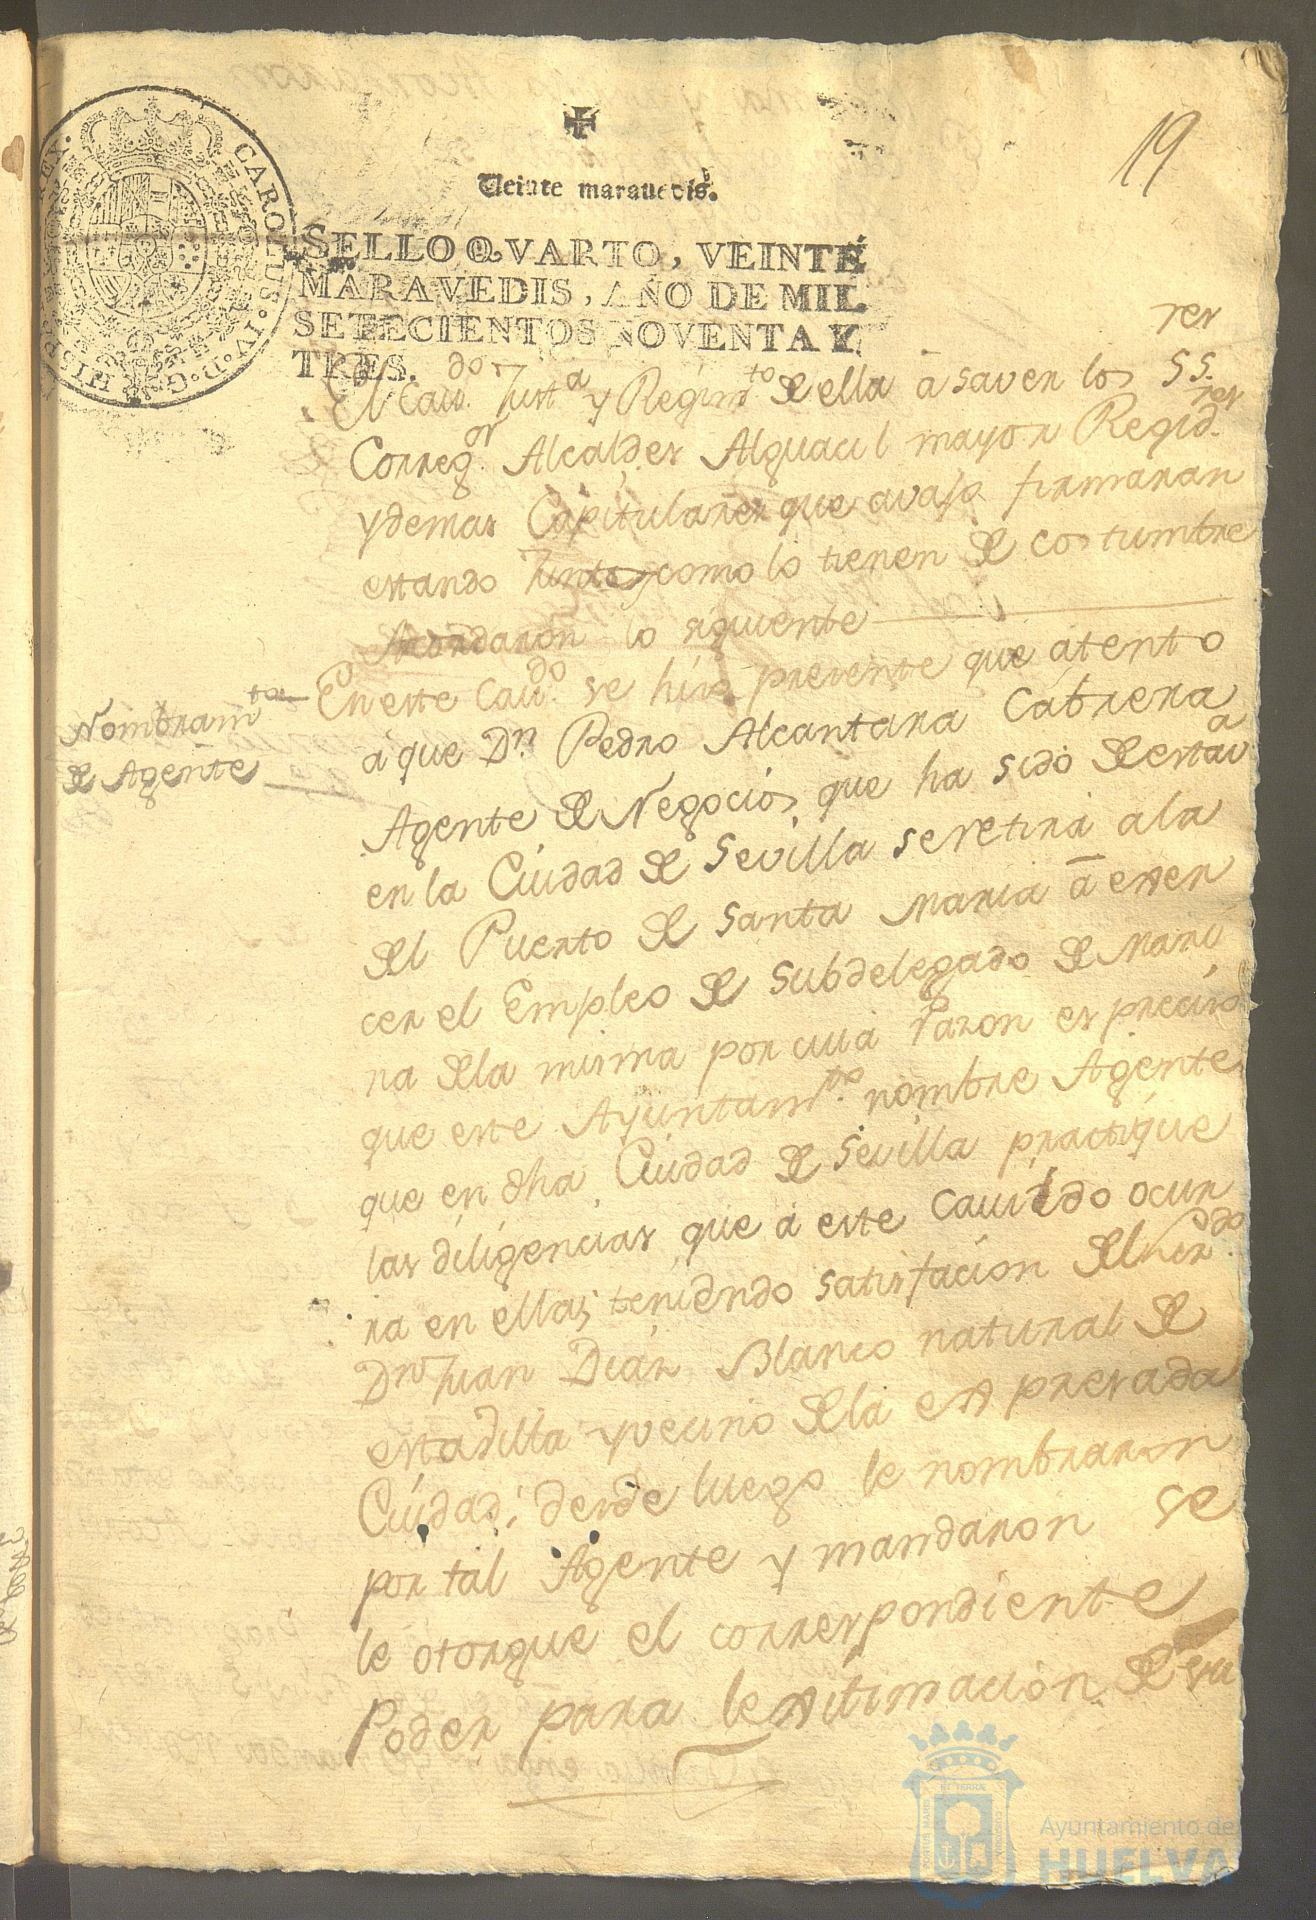 19
CAROLUS · IV · D · G · HISP · REX ·
Veinte maravedis.
SELLO QVARTO, VEINTE
MARAVEDIS, AÑO DE MIL
SETECIENTOS NOVENTA Y
TRES.
El Cavdo. Justa y Regimto de ella â saver los SS.res
Corregor. Alcaldes Alguacil mayor Regid.res
y demas Capitulares que avajo firmaran
estando Juntos como lo tienen de costumbre
Acordaron lo siguiente
Nombramto
de Agente
En este Cavdo. se hiso presente que atento
a que Dn. Pedro Alcantara Cabrera
Agente de Negocios, que ha sido de esta va
en la Ciudad de Sevilla se retira a la
del Puerto de Santa Maria â exer
cer el Empleo de Subdelegado de Mari
na de la misma por cuia razon es preciso
que este Ayuntamto. nombre Agente
que en dha Ciudad de Sevilla practique
las diligencias que a este Cavildo ocur
ra en ella; teniendo satisfacion del
Dn Juan Diaz Blanco natural de
esta villa y vecino de la expresada
Ciudad; desde luego le nombraron
por tal Agente y mandaron se
le otorgue el correspondiente
Poder para lexitimacion de su
Ayuntamiento de
HUELVA